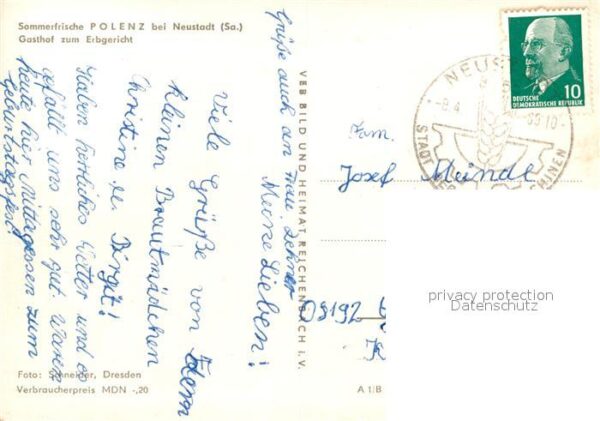 Sommerfrische POLENZ bei Neustadt (Sa.)
Gasthof zum Erbgericht
Meine Lieben!
Viele Grüße von
kleinen Brautmädchen
Christine u. Birgit!
Haben herrliches Wetter und es
gefällt uns sehr gut. Waren
heute hier Mittagessen zum
Geburtstagsfest!
Grüße auch an Frau
Foto: Schneider, Dresden
Verbraucherpreis MDN -,20
VEB BILD UND HEIMAT REICHENBACH I. V.
A 1/B
NEUS
-8.4
65.10
STADT DER
SCHINEN
DEUTSCHE
DEMOKRATISCHE REPUBLIK
10
Fam.
Josef Meindl
privacy protection
Datenschutz